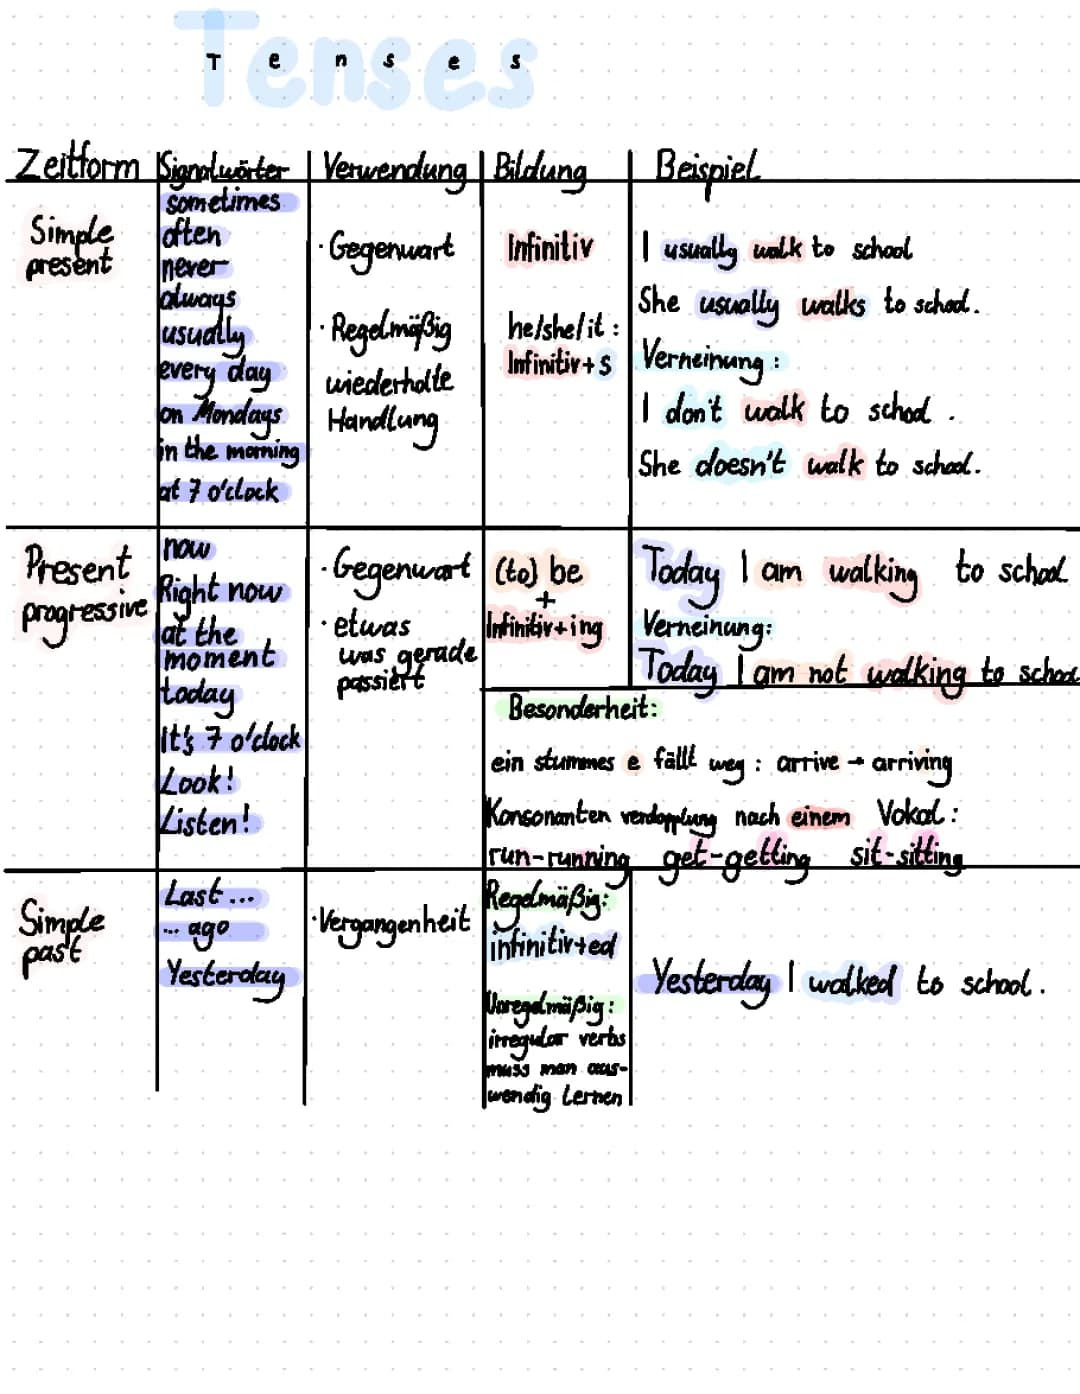 Tenses
T e n s e s
Zeitform Signalwörter Verwendung Bildung Beispiel
Simple
present
sometimes
often
never
always
usually
every day
on Mondays
in the morning
at 7 o'clock
· Gegenwart
· Regelmäßig
wiederholte
Handlung
Infinitiv
he/she/it :
Infinitiv+s
I usually walk to school
She usually walks to school.
Verneinung :
I don't walk to school .
She doesn't walk to school.
Present
progressive
now
Right now
at the
moment
today
It's 7 o'clock
Look!
Listen!
· Gegenwart
· etwas
was gerade
passiert
(to) be
+
Infinitiv+ing
Today I am walking to school
Verneinung:
Today I am not walking to school
Besonderheit:
ein stummes e fällt weg : arrive → arriving
Konsonanten verdopplung nach einem Vokal :
run-running get-getting sit-sitting
Simple
past
Last ...
... ago
Yesterday
·Vergangenheit
Regelmäßig:
infinitiv+ed
Unregelmäßig:
irregular verbs
muss man aus-
wendig lernen
Yesterday I walked to school .